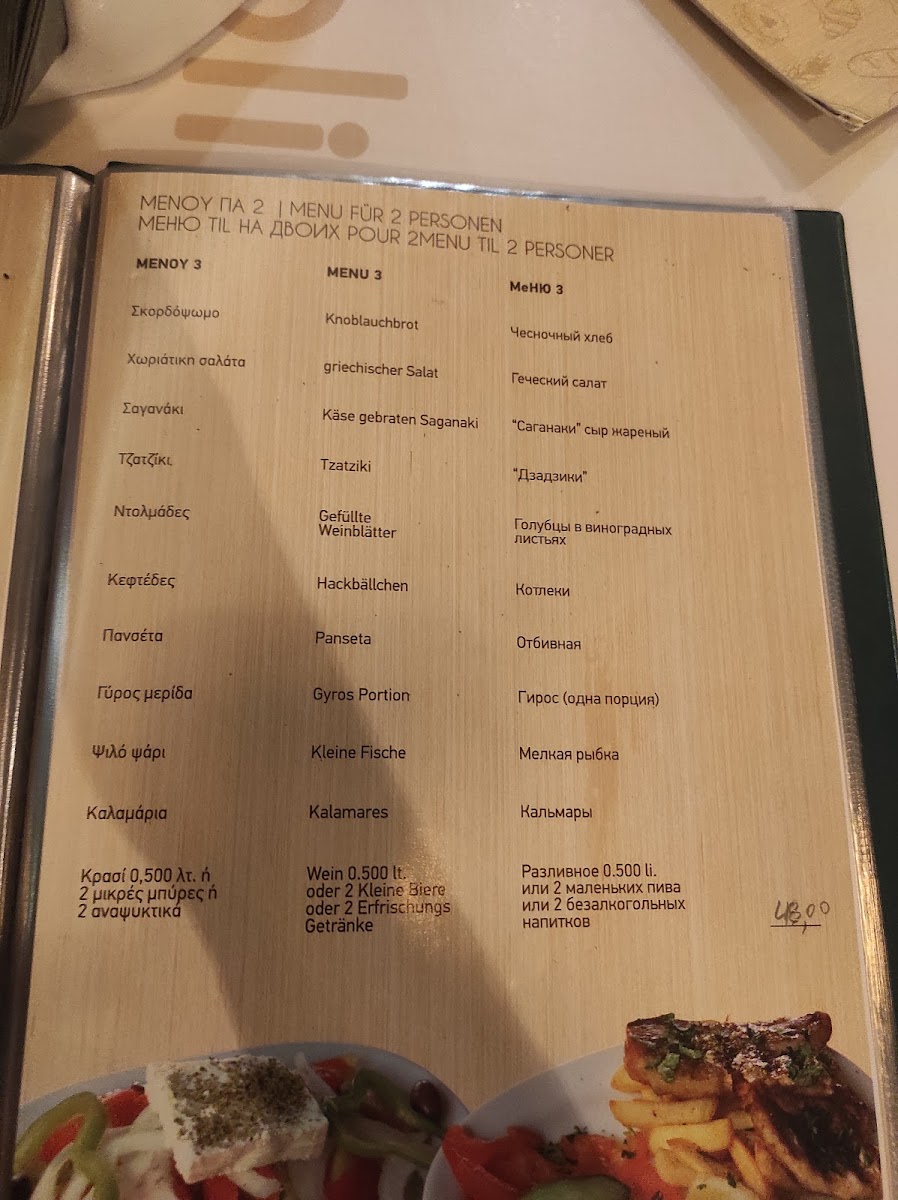 ΜΕΝΟΥ ΓΙΑ 2 | MENU FÜR 2 PERSONEN
МЕНЮ TIL НА ДВОИХ POUR 2MENU TIL 2 PERSONER
ΜΕΝΟΥ 3
Σκορδόψωμο
Χωριάτικη σαλάτα
Σαγανάκι
Τζατζίκι
Ντολμάδες
Κεφτέδες
Πανσέτα
Γύρος μερίδα
Ψιλό ψάρι
Καλαμάρια
Κρασί 0,500 λτ. ή
2 μικρές μπύρες ή
2 αναψυκτικά
MENU 3
Knoblauchbrot
griechischer Salat
Käse gebraten Saganaki
Tzatziki
Gefüllte
Weinblätter
Hackbällchen
Panseta
Gyros Portion
Kleine Fische
Kalamares
Wein 0.500 lt.
oder 2 Kleine Biere
oder 2 Erfrischungs
Getränke
МеНЮ 3
Чесночный хлеб
Геческий салат
"Саганаки" сыр жареный
"Дзадзики"
Голубцы в виноградных
листьях
Котлеки
Отбивная
Гирос (одна порция)
Мелкая рыбка
Кальмары
Разливное 0.500 li.
или 2 маленьких пива
или 2 безалкогольных
напитков
48,00